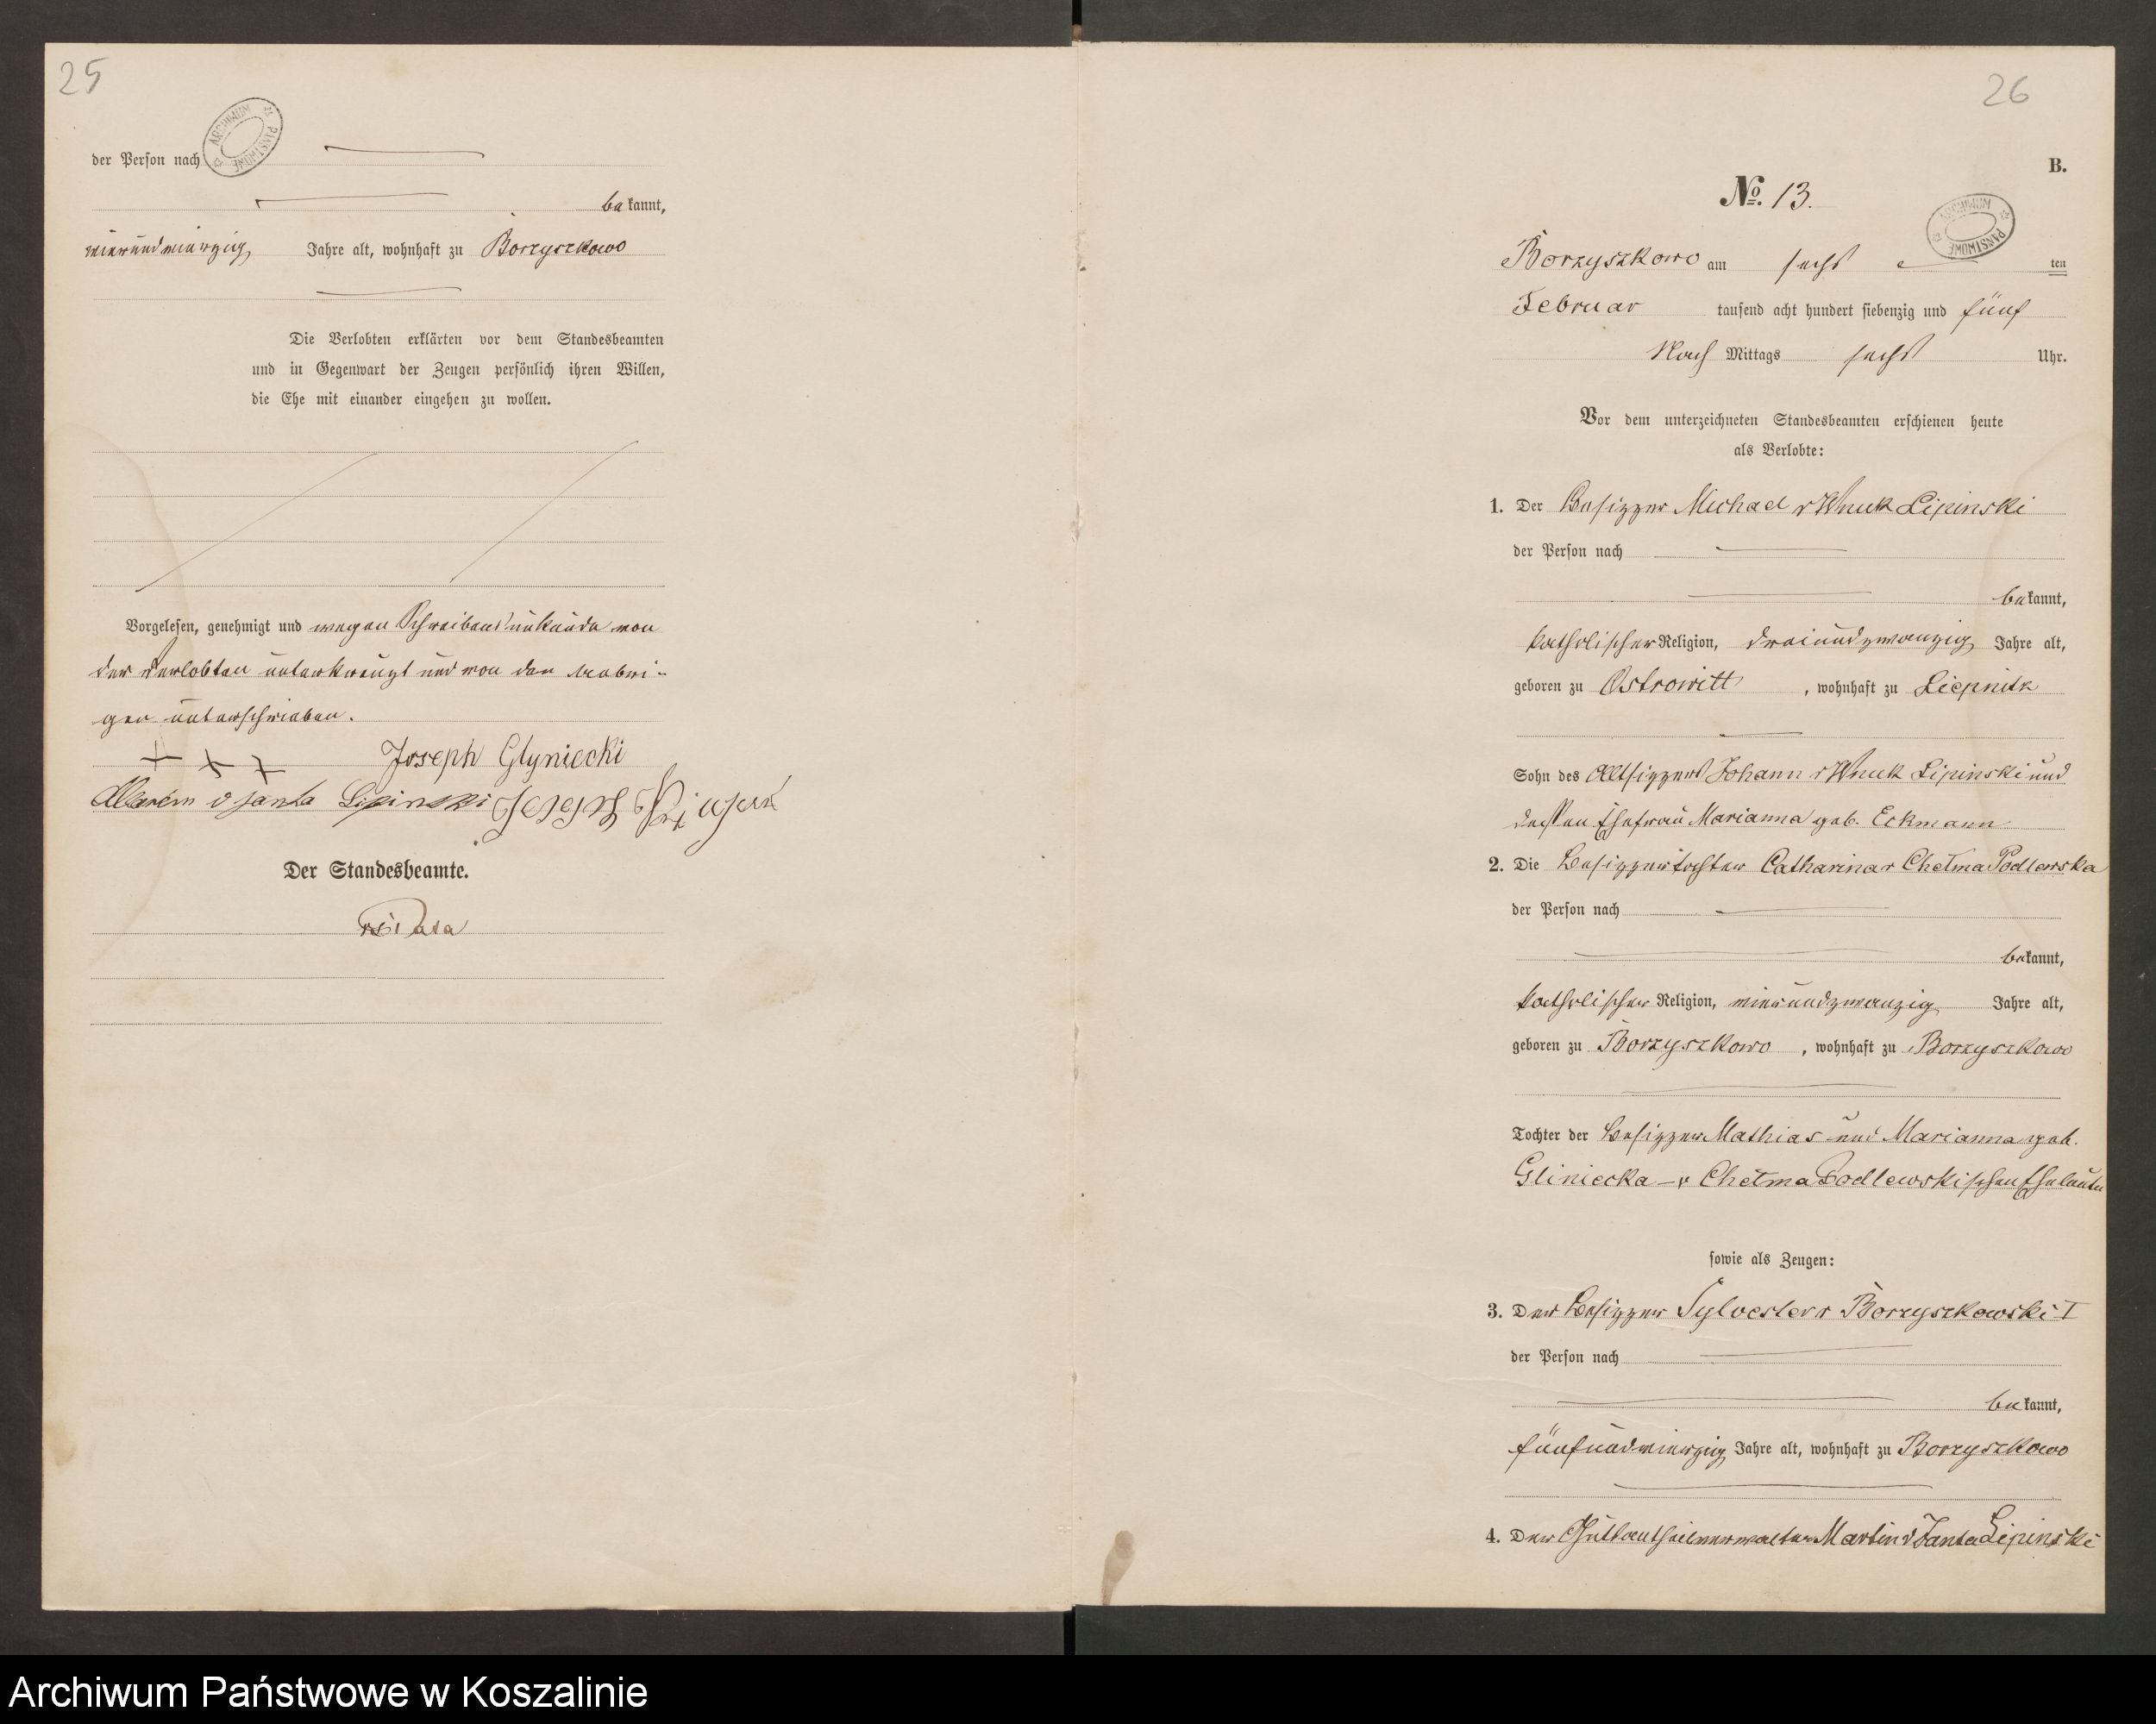 25
der Person nach
bekannt,
vierundvierzig Jahre alt, wohnhaft zu Borzyszkowo
Die Verlobten erklärten vor dem Standesbeamten
und in Gegenwart der Zeugen persönlich ihren Willen,
die Ehe mit einander eingehen zu wollen.
Vorgelesen, genehmigt und wegen Schreibensunkunde von
der Verlobten unterkreuzt und von den uebri-
gen unterschrieben.
+ + + Joseph Glyniecki
v Janta Lipinski Joseph
Der Standesbeamte.
26
B.
No. 13.
ARCHIWUM PAŃSTWOWE
Borzyszkowo am sechs ten
Februar tausend acht hundert siebenzig und fünf
Nach Mittags sechs Uhr.
Vor dem unterzeichneten Standesbeamten erschienen heute
als Verlobte:
1. Der Besitzer Michael v Wnuk Lipinski
der Person nach
bekannt,
katholischer Religion, dreiundzwanzig Jahre alt,
geboren zu Ostrowitt, wohnhaft zu Liepnitz
Sohn des Altsitzers Johann v Wnuk Lipinski und
dessen Ehefrau Marianna geb. Eckmann
2. Die Besitzertochter Catharina v Chełma Podlewska
der Person nach
bekannt,
katholischer Religion, vierundzwanzig Jahre alt,
geboren zu Borzyszkowo, wohnhaft zu Borzyszkowo
Tochter der Besitzer Mathias und Marianna geb.
Gliniecka - v Chełma Podlewskischen Eheleute
sowie als Zeugen:
3. Der Besitzer Sylvester v Borzyszkowski I
der Person nach
bekannt,
fünfundvierzig Jahre alt, wohnhaft zu Borzyszkowo
4. Der Martin v Janta Lipinski
Archiwum Państwowe w Koszalinie